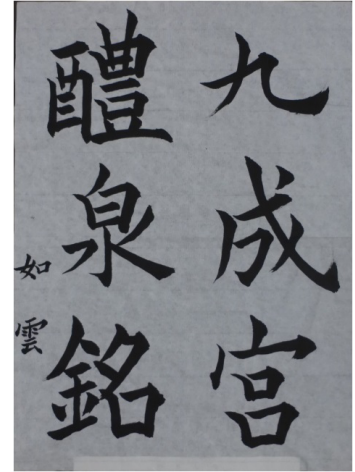 九成宮
醴泉銘
如雲